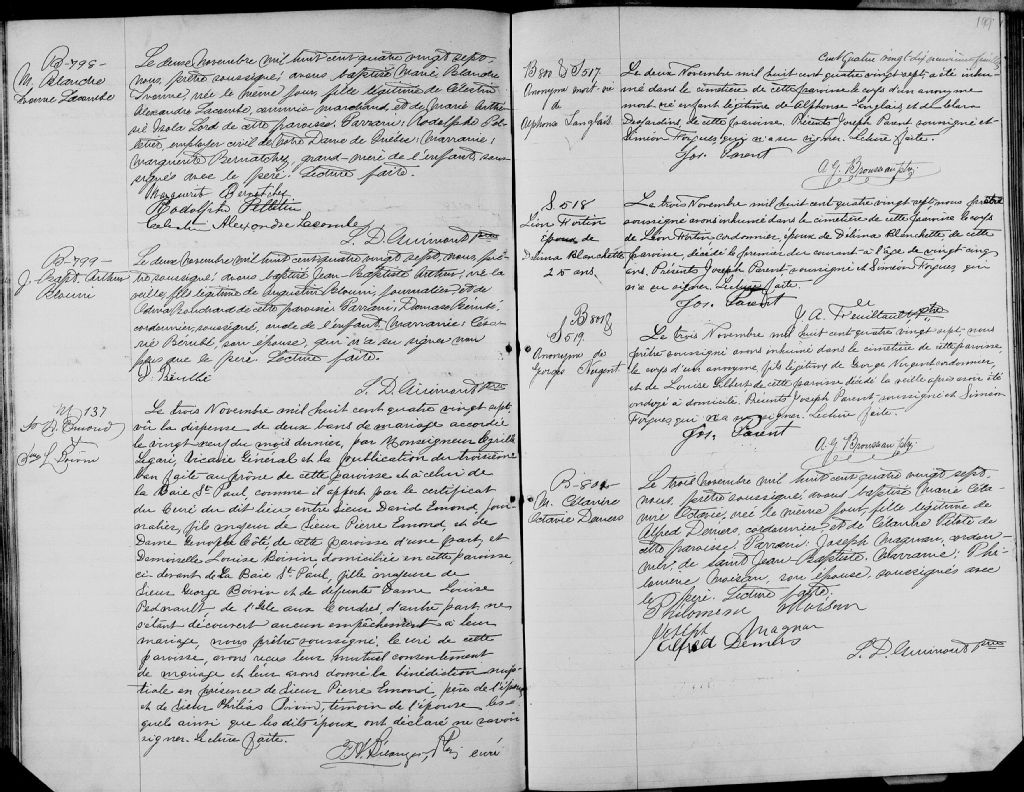 B-798-
M. Blandre
Ivonne Lacombe
Le deux Novembre mil huit cent quatre vingt sept
nous, prêtre soussigné, avons baptisé Marie Blandre
Ivonne, née le même jour, fille légitime de Célestin
Alexandre Lacombe, commis marchand, et de Marie
Lord de cette paroisse. Parrain: Rodolphe Pel-
letier, employé civil de Notre Dame de Québec; Marraine:
Marguerite Bernatchez, grand-mère de l'enfant, sous-
signés avec le père. Lecture faite.
Marguerit Bernatchez
Rodolphe Pelletier
Celestin Alexandre Lacombe
L. D. Guimont ptre
B-799-
J. Bapt. Arthur
Blouin
Le deux novembre mil huit cent quatre vingt sept, nous, prê-
tre soussigné, avons baptisé Jean-Baptiste Arthur, né la
veille, fils légitime de Augustin Blouin, journalier, et de
Bouchard de cette paroisse. Parrain: Damase Bérubé,
cordonnier, soussigné, oncle de l'enfant. Marraine: Césa-
rie Bérubé son épouse, qui n'a su signer non
plus que le père. Lecture faite.
D. Bérubé
L. D. Guimont ptre
M 137
D Emond
&
L. Boivin
Le trois Novembre mil huit cent quatre vingt sept,
vû la dispense de deux bans de mariage accordée
le vingt neuf du mois dernier, par Monseigneur Cyrille
Legaré, Vicaire Général et la publication du troisième
ban faite au prône de cette paroisse et à celui de
la Baie St. Paul, comme il appert par le certificat
du Curé du dit lieu entre Sieur David Emond, jour-
nalier, fils majeur de Sieur Pierre Emond, et de
Dame Geneviève Côté, de cette paroisse d'une part, et
Demoiselle Louise Boivin domiciliée en cette paroisse,
ci-devant de La Baie St. Paul, fille majeure de
Sieur George Boivin et de defunte Dame Louise
Pednault de l'Isle aux Coudres, d'autre part, ne
s'étant découvert aucun empêchement à leur
mariage, nous prêtre soussigné, le curé de cette
paroisse, avons reçu leur mutuel consentement
de mariage et leur avons donné la bénédiction nup-
tiale en présence de Sieur Pierre Emond, père de l'époux
et de Sieur Philéas Boivin, témoin de l'épouse, les-
quels ainsi que les dits époux ont déclaré ne savoir
signer. Lecture faite.
F. X. Bélanger, Ptre curé
199
Cent quatre vingt dix neuvième feuillet
B 800 & S 517
Anonyme mort-né
d
Alphonse Langlais
Le deux Novembre mil huit cent quatre vingt sept, a été inhu-
mé dans le cimetière de cette paroisse le corps d'un anonyme
mort-né enfant légitime de Alphonse Langlais, et de Clara
Desjardins, de cette paroisse. Présents Joseph Parent soussigné et
Siméon Forgues, qui n'a su signer. Lecture faite.
Jos. Parent
A. G. Brousseau ptre
S 518
Léon Fortin
époux de
Délima Blanchette
25 ans
Le trois Novembre mil huit cent quatre vingt sept, nous prêtre
soussigné avons inhumé dans le cimetière de cette paroisse le corps
de Léon Fortin cordonnier, époux de Délima Blanchette de cette
paroisse, décédé le premier du courant à l'âge de vingt cinq
ans. Présents Joseph Parent soussigné et Siméon Forgues qui
n'a su signer. Lecture faite.
Jos. Parent
A. Feuiltault ptre
B 801 &
S 519
Anonyme de
Georges Nugent
Le trois Novembre mil huit cent quatre vingt sept, nous
prêtre soussigné avons inhumé dans le cimetière de cette paroisse,
le corps d'un anonyme, fils légitime de George Nugent cordonnier,
et de Louise Gilbert de cette paroisse décédé la veille après avoir été
ondoyé à domicile. Présents Joseph Parent soussigné et Siméon
Forgues qui n'a su signer. Lecture faite.
Jos. Parent
A. G. Brousseau ptre
B-802-
M.
Octavie Demers
Le trois Novembre mil huit cent quatre vingt sept
nous, prêtre soussigné, avons baptisé Marie
Octavie, née le même jour, fille légitime de
Alfred Demers, cordonnier, et de
cette paroisse. Parrain: Joseph Magnan, cordon-
nier, de Saint Jean-Baptiste. Marraine: Phi-
lomène Moisan, son épouse, soussignés avec
le père. Lecture faite.
Philomene Moisan
Joseph Magnan
Alfred Demers
L. D. Guimont ptre